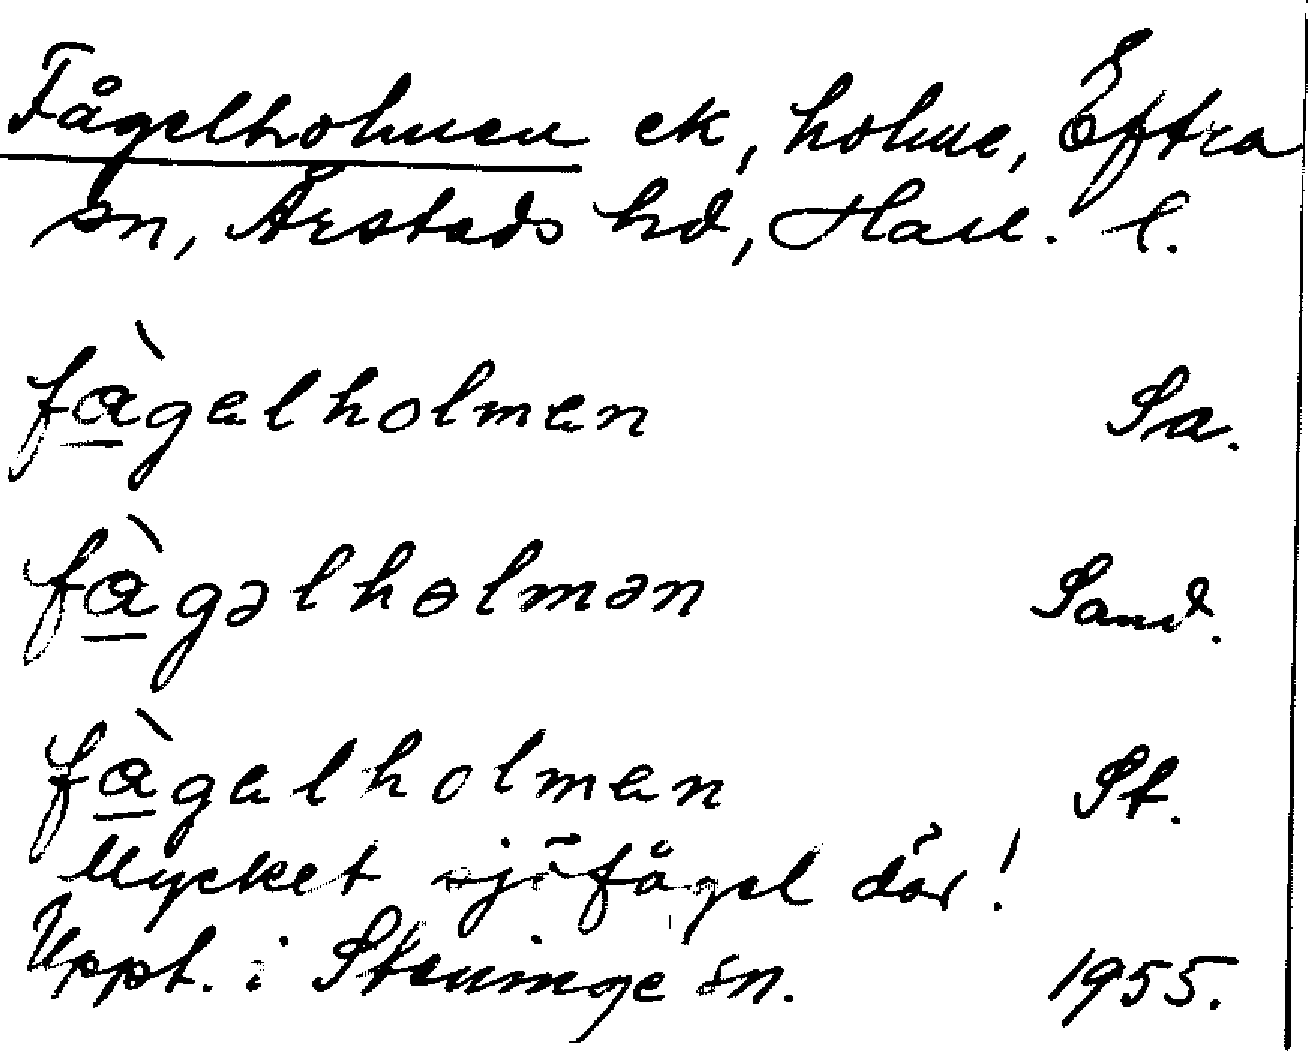 Fågelholmen ek, holme, Eftra
sn, Årstads hd, Hall. l.
fàgəlholmən Sa.
fàgəlhɵlmən Sand.
fàgəlholmən St.
Mycket sjöfågel där!
Uppt. i Steninge sn. 1955.